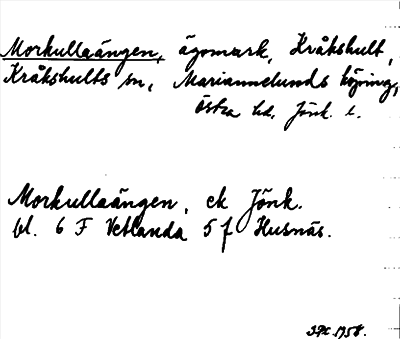 Morkullaängen, ägomark, Kråkshult,
Kråkshults sn, Mariannelunds köping,
Östra hd, Jönk. l.
Morkullaängen, ek Jönk.
bl. 6 F Vetlanda 5 f Husnäs.
1958.